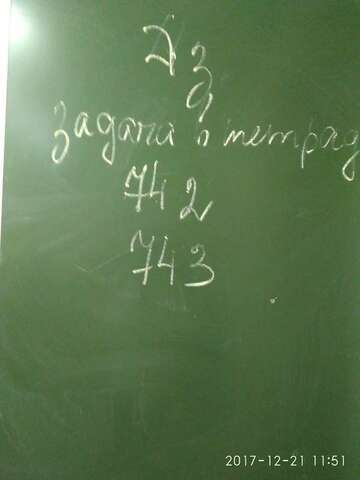 Дз
задача в тетрад
742
743
2017-12-21 11:51